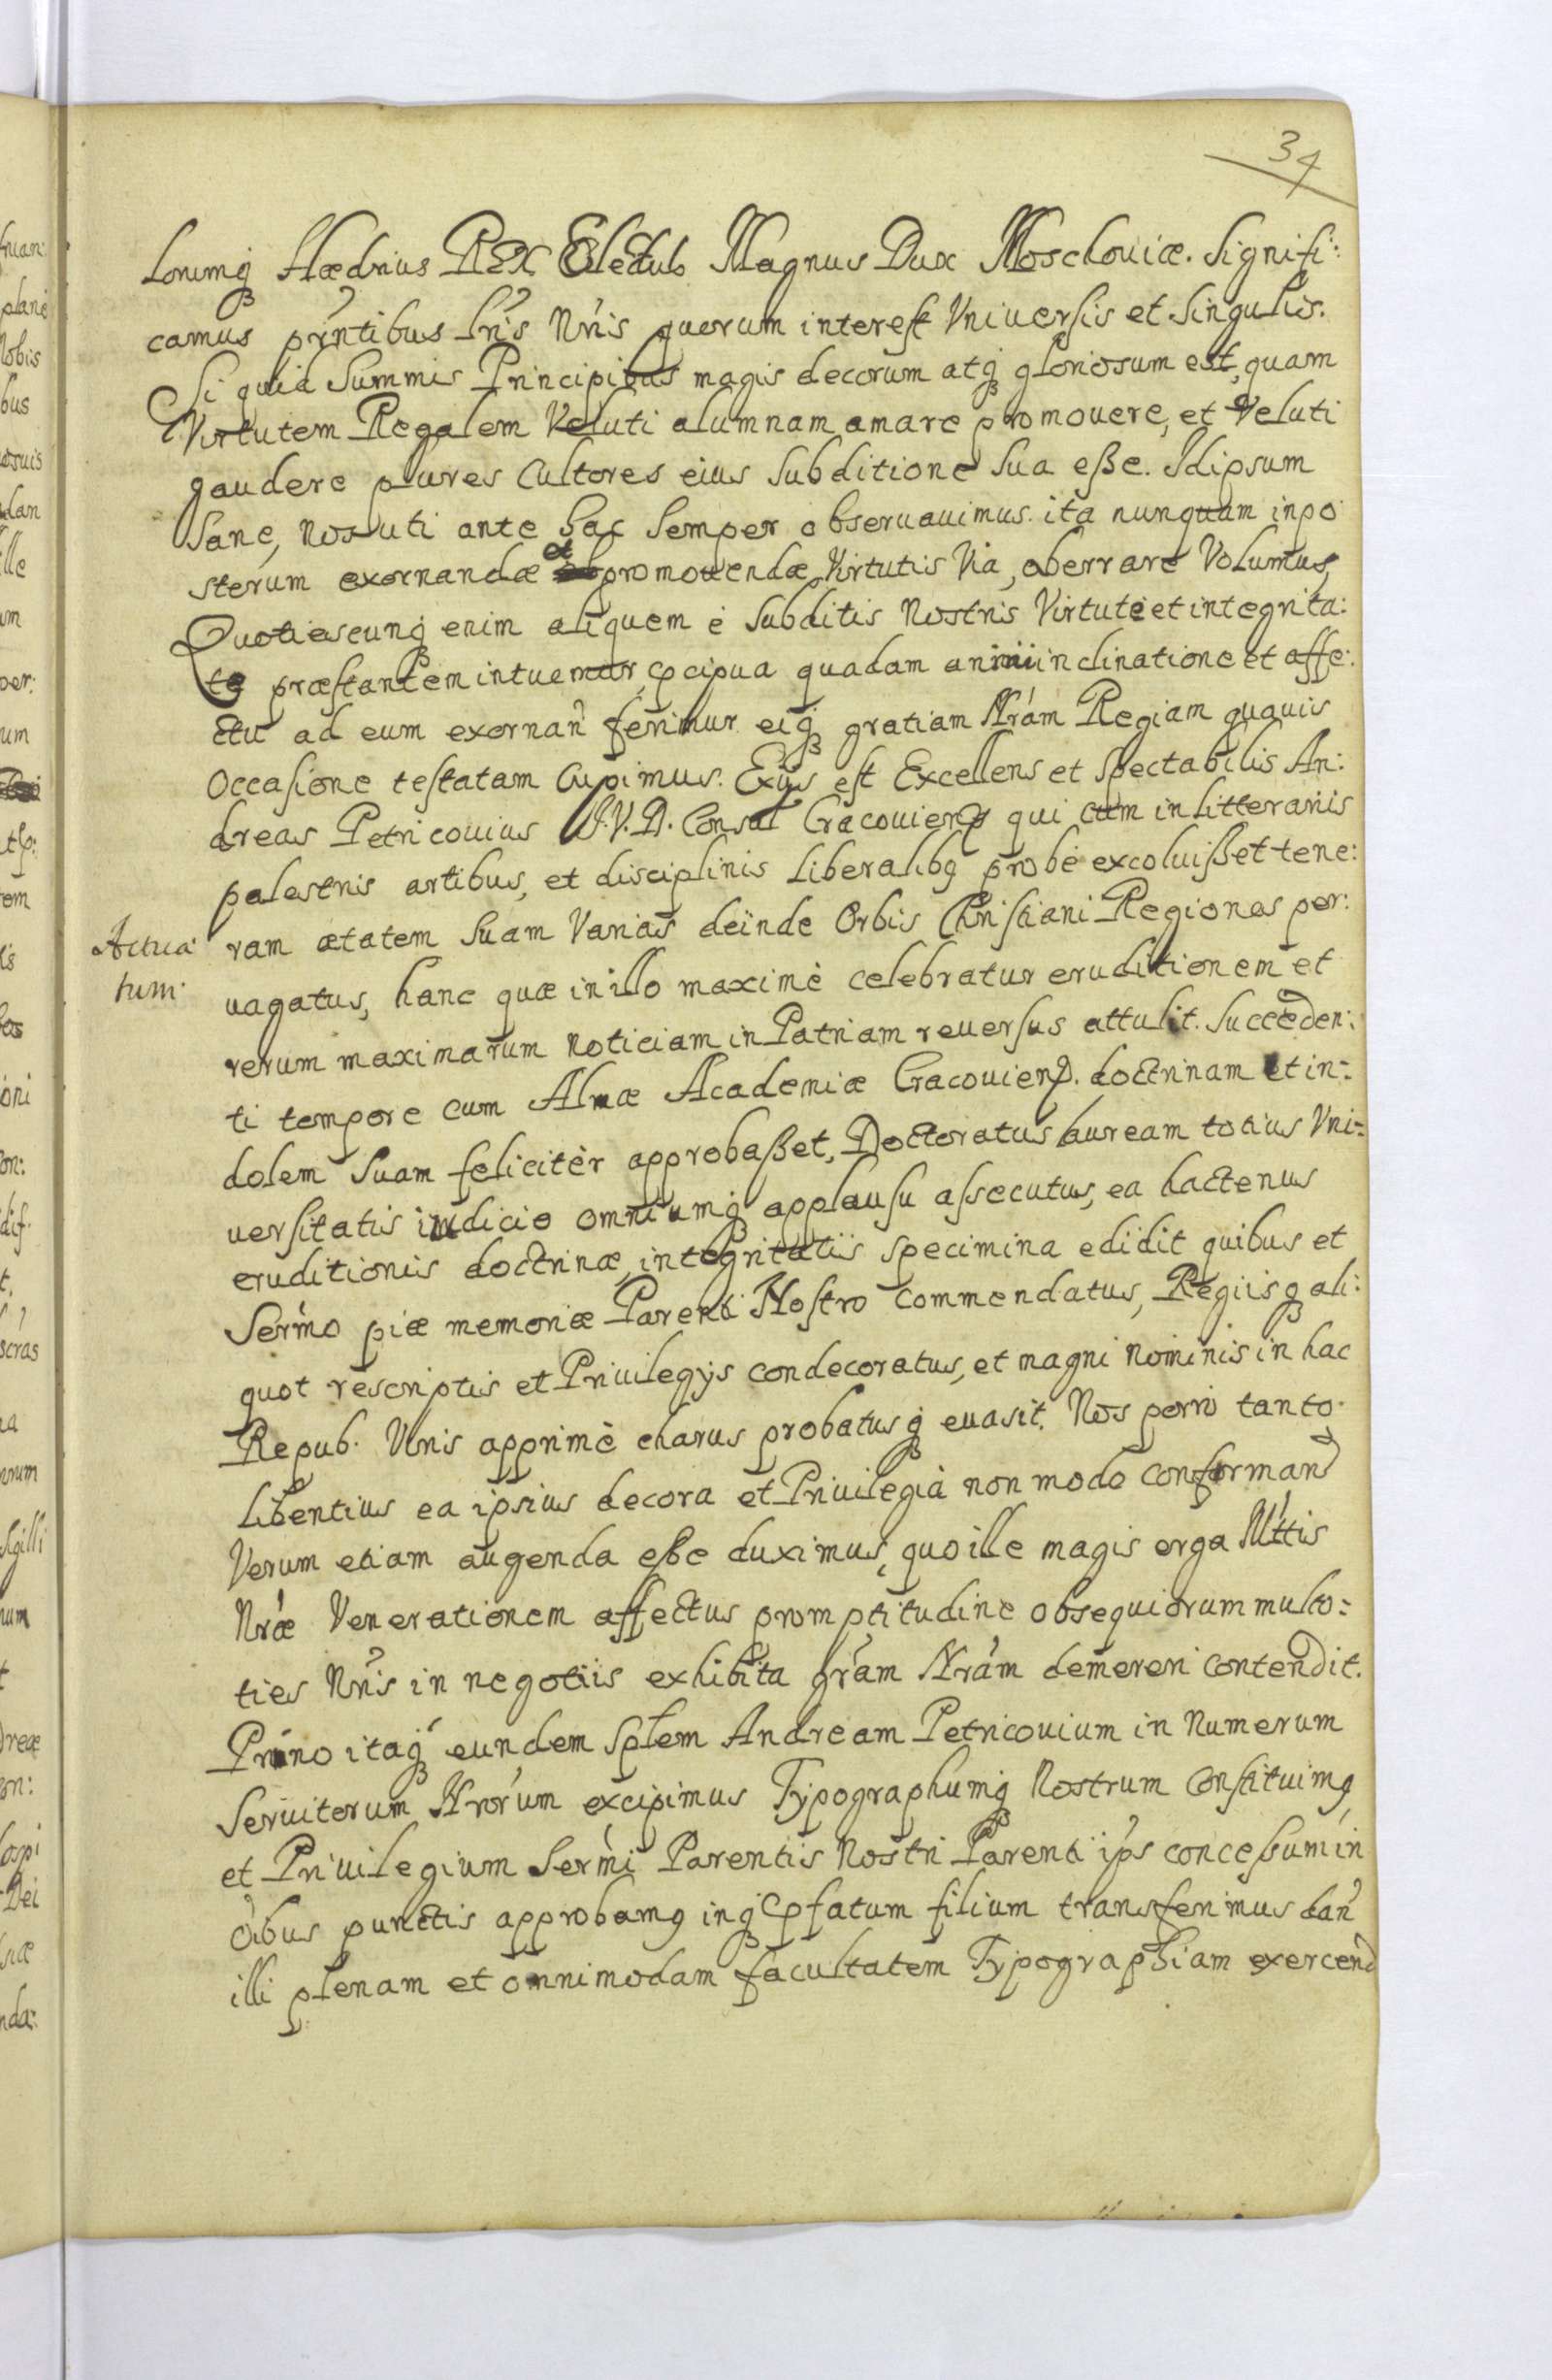 34
lorumq Hædrius REX Electus Magnus Dux Moschouiæ. Signifi:
camus prntibus Lris Nris quorum interest Vniuersis et Singulis.
Si quid Summis Principibus magis decorum atq gloriosum est, quam
Virtutem Regalem Veluti alumnam amare promouere, et Veluti
gaudere plures Cultores eius Subditione Sua eße. Idipsum
Sane, Nos uti ante hac Semper obseruauimus. ita nunquam inpo
sterum exornandæ et promouendæ Virtutis Via, aberrare Volumus,
Quotiescunq enim aliquem è Subditis Nostris Virtute et integrita:
te præstantem intuemur, pcipua quadam animi inclinatione et affe:
ctu ad eum exornan ferimur eiq gratiam Nram Regiam quauis
Occasione testatam Cupimus. Exijs est Excellens et Spectabilis An:
dreas Petricouius J.V.D. Consul Cracouiens qui cum in litterariis
palestris artibus, et disciplinis Liberalibq probè excoluißet tene:
ram ætatem Suam Varias deinde Orbis Christiani Regiones per:
Actua
tum.
uagatus, hanc quæ in illo maximè celebratur eruditionem et
rerum maximarum noticiam in Patriam reuersus attulit. Succeden:
ti tempore cum Almæ Academiæ Cracouiens. doctrinam et in:
dolem Suam felicitèr approbaßet, Doctoratus lauream totius Vni:
uersitatis iudicio omniumq applausu assecutus, ea hactenus
eruditionis doctrinæ, integritatis specimina edidit quibus et
Sermo piæ memoriæ Parenti Nostro commendatus, Regiisq ali:
quot rescriptis et Priuilegijs condecoratus, et magni nominis in hac
Repub. Viris apprimè charus probatusq euasit. Nos porro tanto
libentius ea ipsius decora et Priuilegia non modo conformand
Verum etiam augenda eße duximus, quo ille magis erga Mttis
Nræ Venerationem affectus promptitudine obsequiorum multo:
ties Nris in negotiis exhibita gram Nram demereri contendit.
Primo itaq eundem Splem Andream Petricouium in Numerum
Seruitorum Nrorum excipimus Typographumq Nostrum Constituimq
et Priuilegium Sermi Parentis Nostri Parenti ips concessum in
oibus punctis approbamq inq pfatum filium transferimus dan
illi plenam et omnimodam facultatem Typographiam exercend